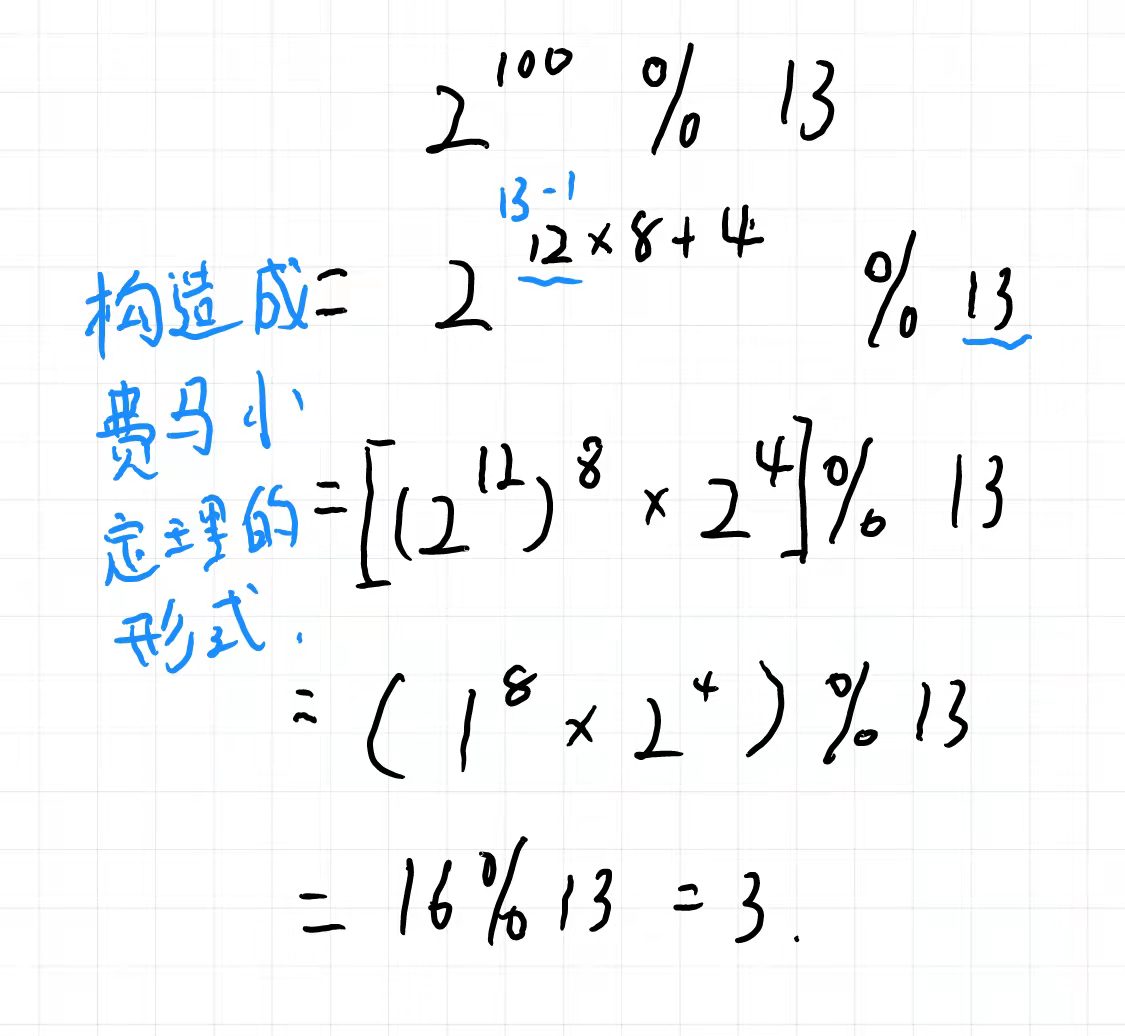 2^100 % 13
13-1
= 2^12×8+4 % 13
构造成
费马小
定理的
形式.
=[(2^12)^8 × 2^4]% 13
= (1^8 × 2^4) % 13
= 16%13 = 3.